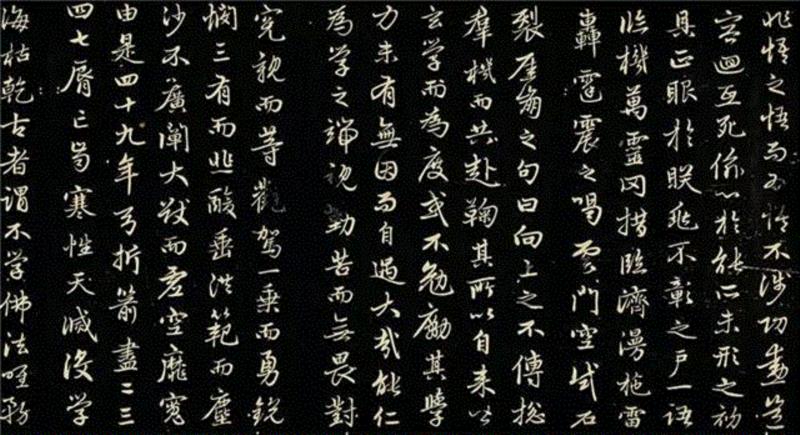 悟之悟而不悟不涉功勳
迴互死於能所未形之初
具正眼於朕兆不彰之户一語
臨機萬靈罔措臨濟漫施雷
轟雹震之喝雲門空或石
裂崖崩之句曰向上之不傳揔
羣機而共赴鞠其所以自来皆
玄學而為度或不勉勵其學
力未有無因而自過大哉能仁
為學之端視勤苦而無畏對
冤親而等觀駕一乘而勇鋭
憫三有而悲酸垂洪範而塵
沙不廣闡大猷而虚空靡寬
由是四十九年弓折箭盡二三
四七脣亡齒寒性天滅没學
海枯乾古者謂不學佛法唯務